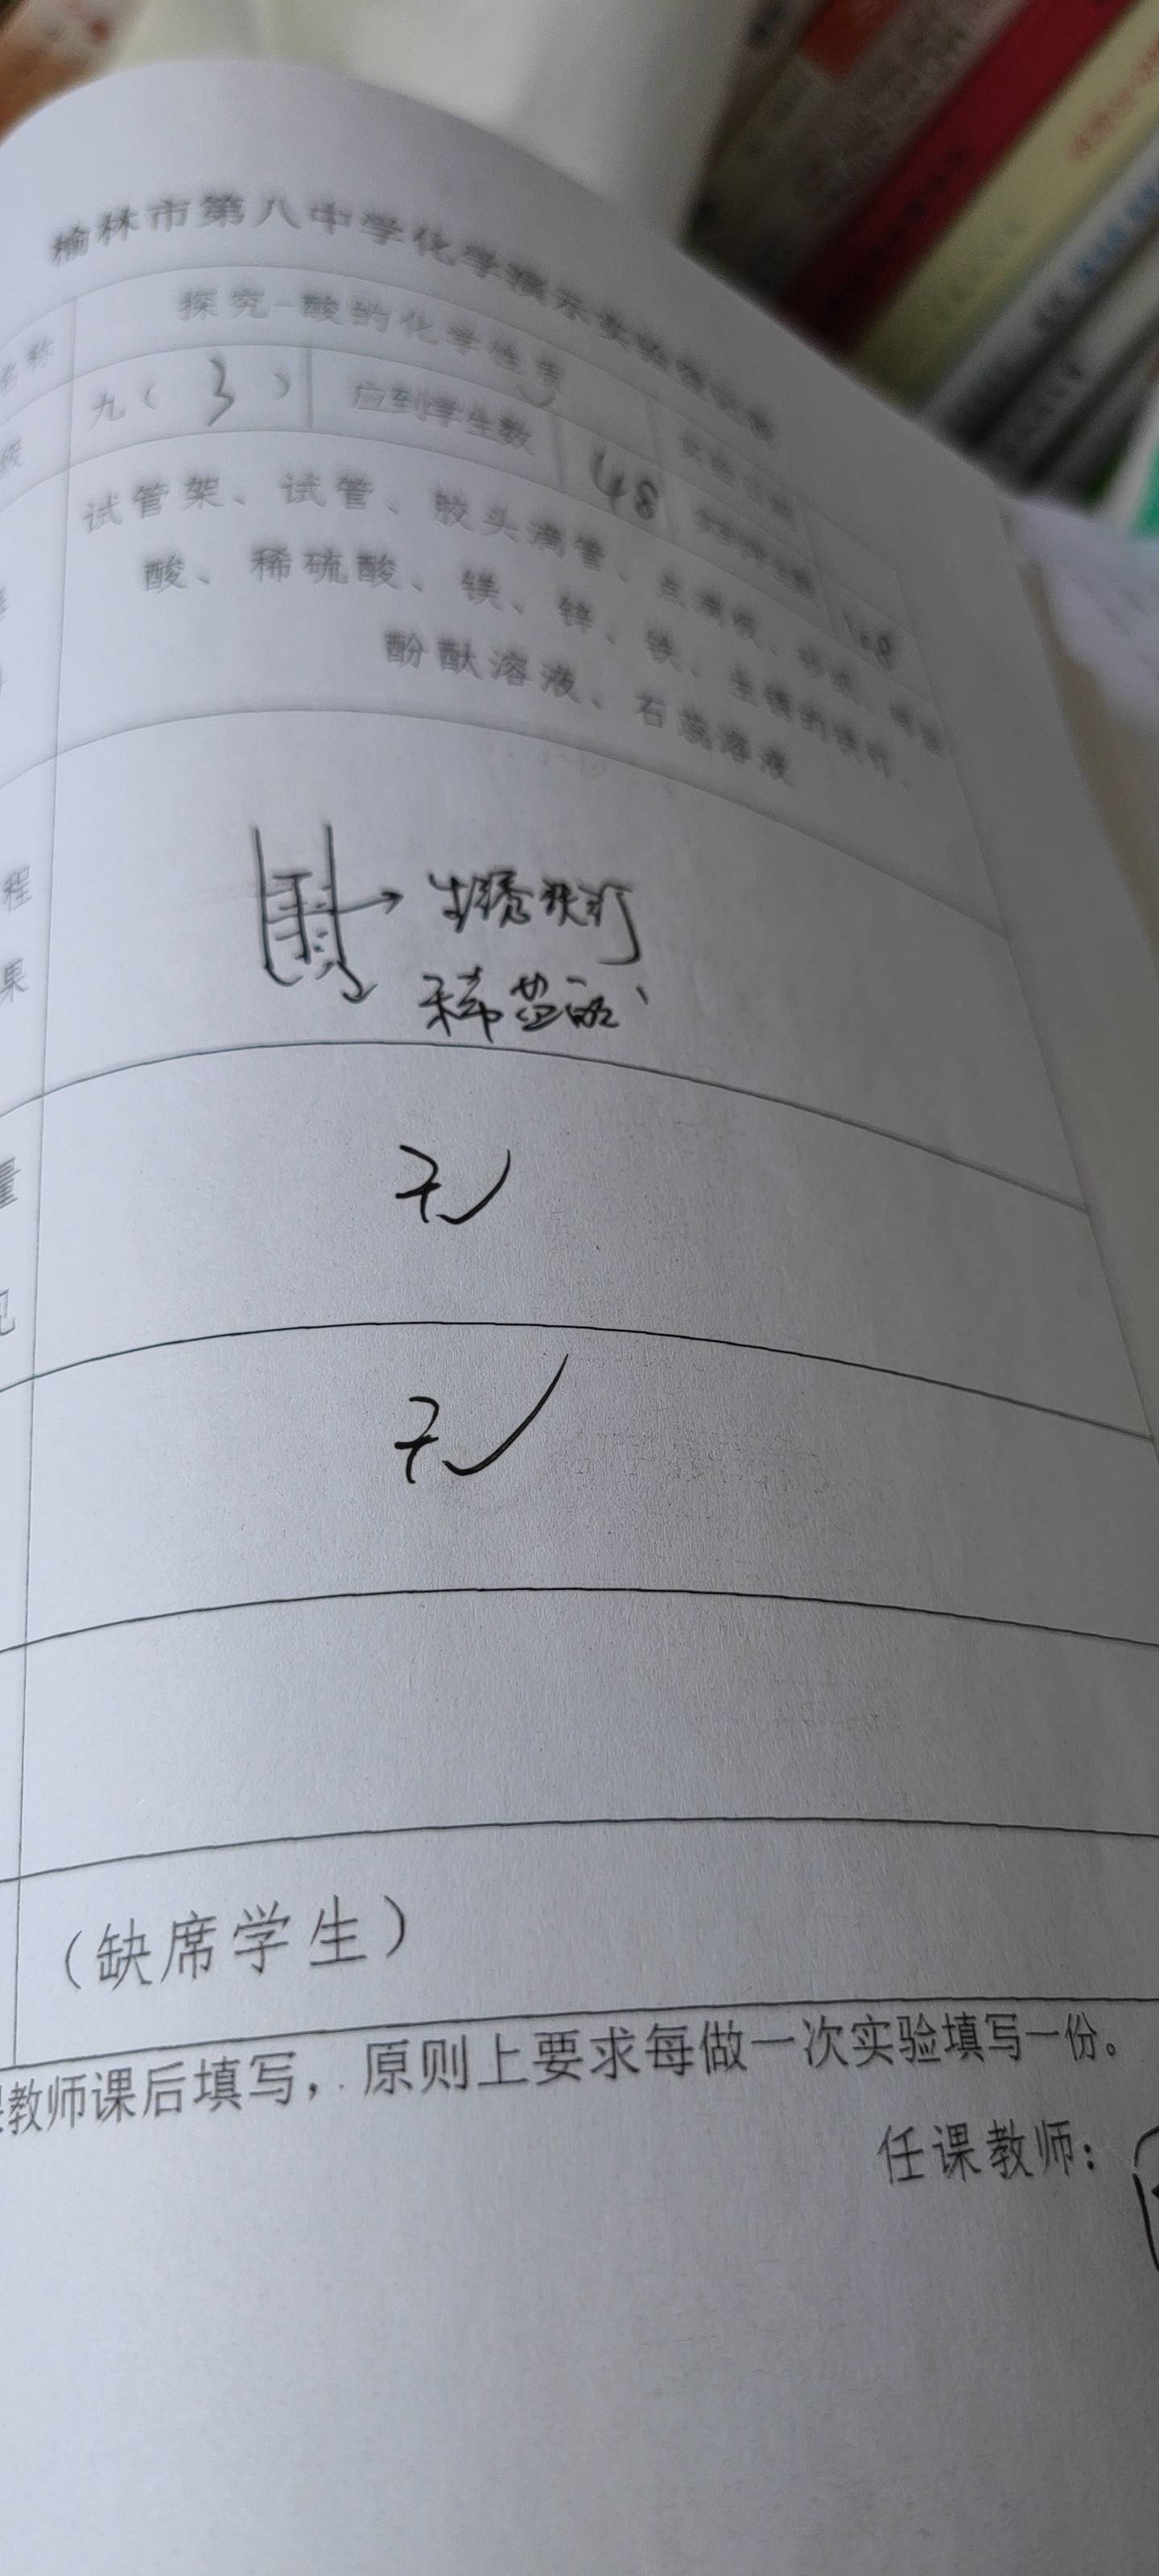 榆林市第八中学化学演示实验
名称 探究-酸的化学性质
级 九（ 3 ） 应到学生数 48 48
试管架、试管、胶头滴管、点滴板、砂纸、
酸、稀硫酸、镁、锌、铁、生锈的铁钉、
酚酞溶液、石蕊溶液
程
果
生锈铁钉
稀盐酸
量
见
无
无
（缺席学生）
课教师课后填写，原则上要求每做一次实验填写一份。
任课教师：